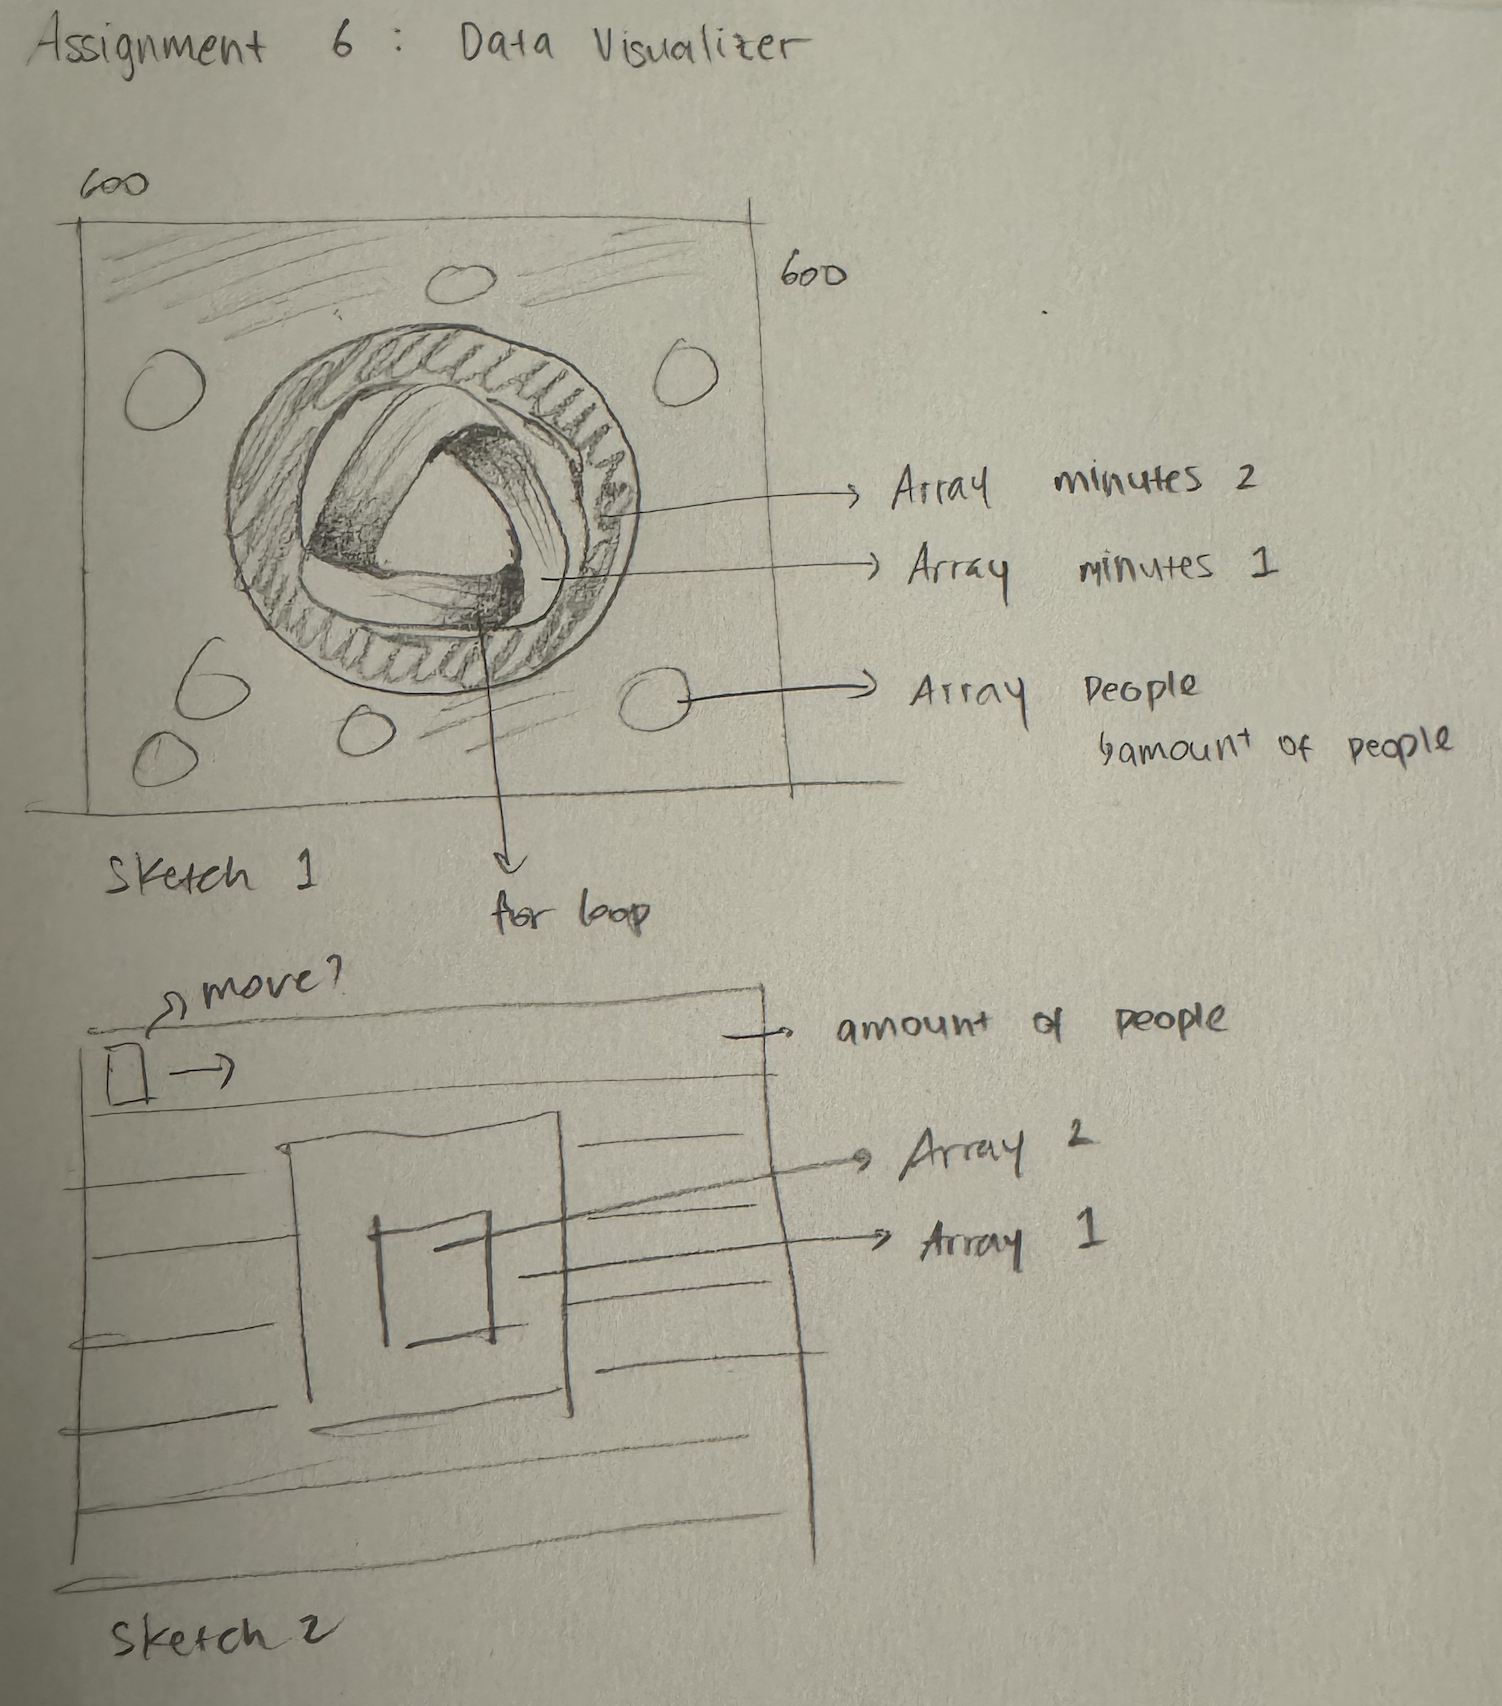 Assignment 6 : Data Visualizer
600
600
Array minutes 2
Array minutes 1
Array people
↳amount of people
Sketch 1
for loop
move?
amount of people
Array 2
Array 1
Sketch 2